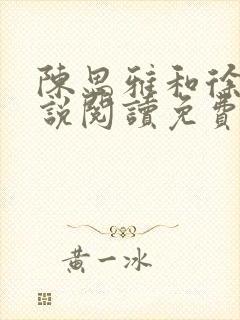 陳思雅和徐
說閱讀免費
黃一冰